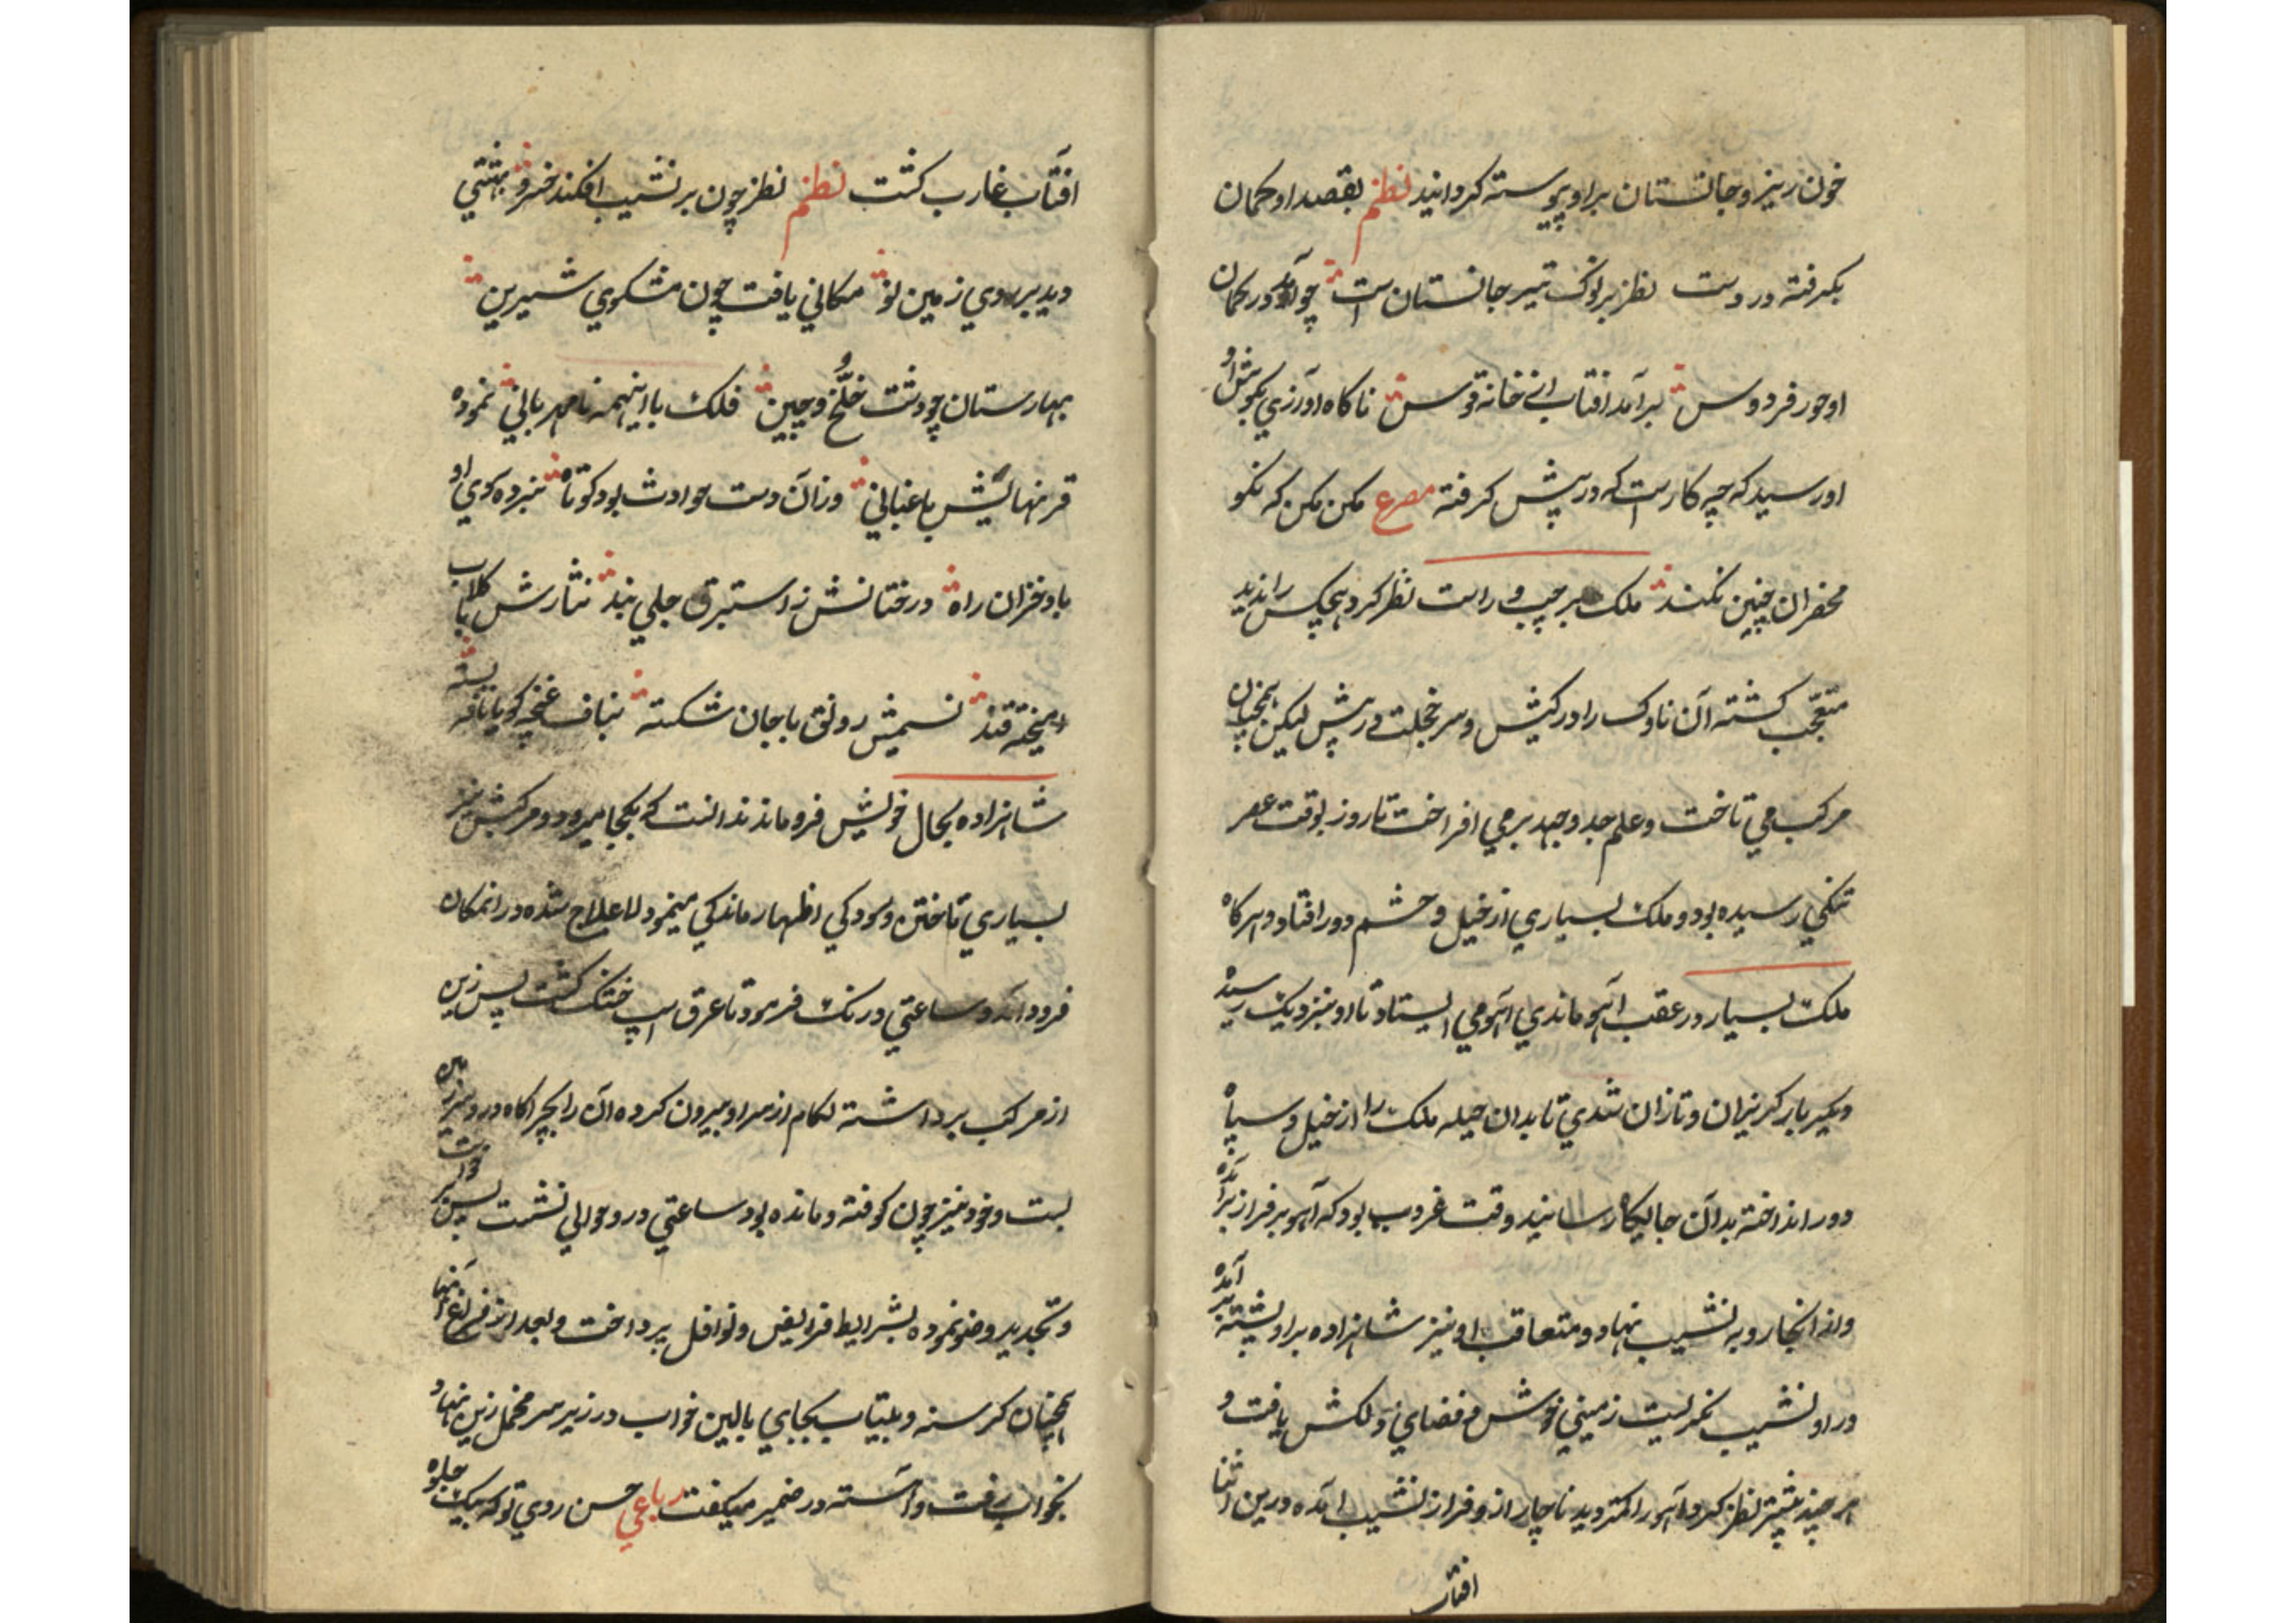 خون ریز و جانستان براو پیوسته کردانید نظم بقصد او کمان
بکرفته در دست نظر بر نوک تیر جانستان است چو آمد در کمان
او حور فردوس برآمد افتاب از خانه قوس ناکاه آوازی بکوش
او رسید که چه کارست که در پیش کرفته مصرع مکن مکن که نکو
محضران چنین نکنند ملک بر چپ و راست نظر کرد هیچکس را ندید
متعجب کشته آن ناوک را در کیش و سر خجلت در پیش لیکن همچنان
مرکب می تاخت و علم جد و جهد بر می افراخت تا روز بوقت عصر
تنکی رسیده بود و ملک بسیاری از خیل و حشم دور افتاد و هرکاه
ملک بسیار در عقب آهو ماندی آهو می ایستاد تا او بنزدیک رسید
و دیکر بار کریزان و تازان شدی تا بدان حیله ملک را از خیل و سپاه
دور انداخته بدآن جایکاه رسانید وقت غروب بود که آهو بر فراز
و از انجا رو به نشیب نهاد و متعاقب او نیز شاهزاده براو پشته بر آمده
در او نشیب نکریست زمینی خوش و فضای دلکش یافت و
هر چند بیشتر نظر کرد آهو را کمتر دید ناچار ازو فراز نشیب آمده درین اثنا
افتاب
افتاب غارب کشت نظم نظر چون بر نشیب افکند خسرو بهشتی
دید بر روی زمین نو مکانی یافت چون مشکوی شیرین
بهارستان چو دشت خلّخ و چین فلک با اینهمه نامهربانی نموده
قرنهایش باغبانی وزآن دست حوادث بود کوتاه نبرده سوی او
باد خزان راه درختانش ز استبرق حلی بند نثارش کلاب با
آمیخته قند نسیمش رونق با جان شکسته بناف غنچه کویا نافه بسته
شاهزاده بحال خویش فرو ماند ندانست که بکجا میرود و مرکبش نیز
بسیاری تاختن و سودکی اظهار ماندکی مینمود لاعلاج شده در انمکان
فرود آمد و ساعتی درنک فرمود تا عرق اسپ خشک کشت پس زین
از مرکب برداشته لکام از سر او بیرون کرده آن را بچراکاه در دو سر زمین
بست و خود نیز چون کوفته و مانده بود ساعتی در و حوالی نشست پس برخواست
و تجدید وضو نموده بشرایط فرایض و نوافل پرداخت و بعد از فراغ آنها
همچنان کرسنه و بیتاب بجای بالین خواب در زیر سر مخمل زین نهاد
بخواب رفت و آهسته در ضمیر میکفت رباعی حسن روی تو که بیک جلوه